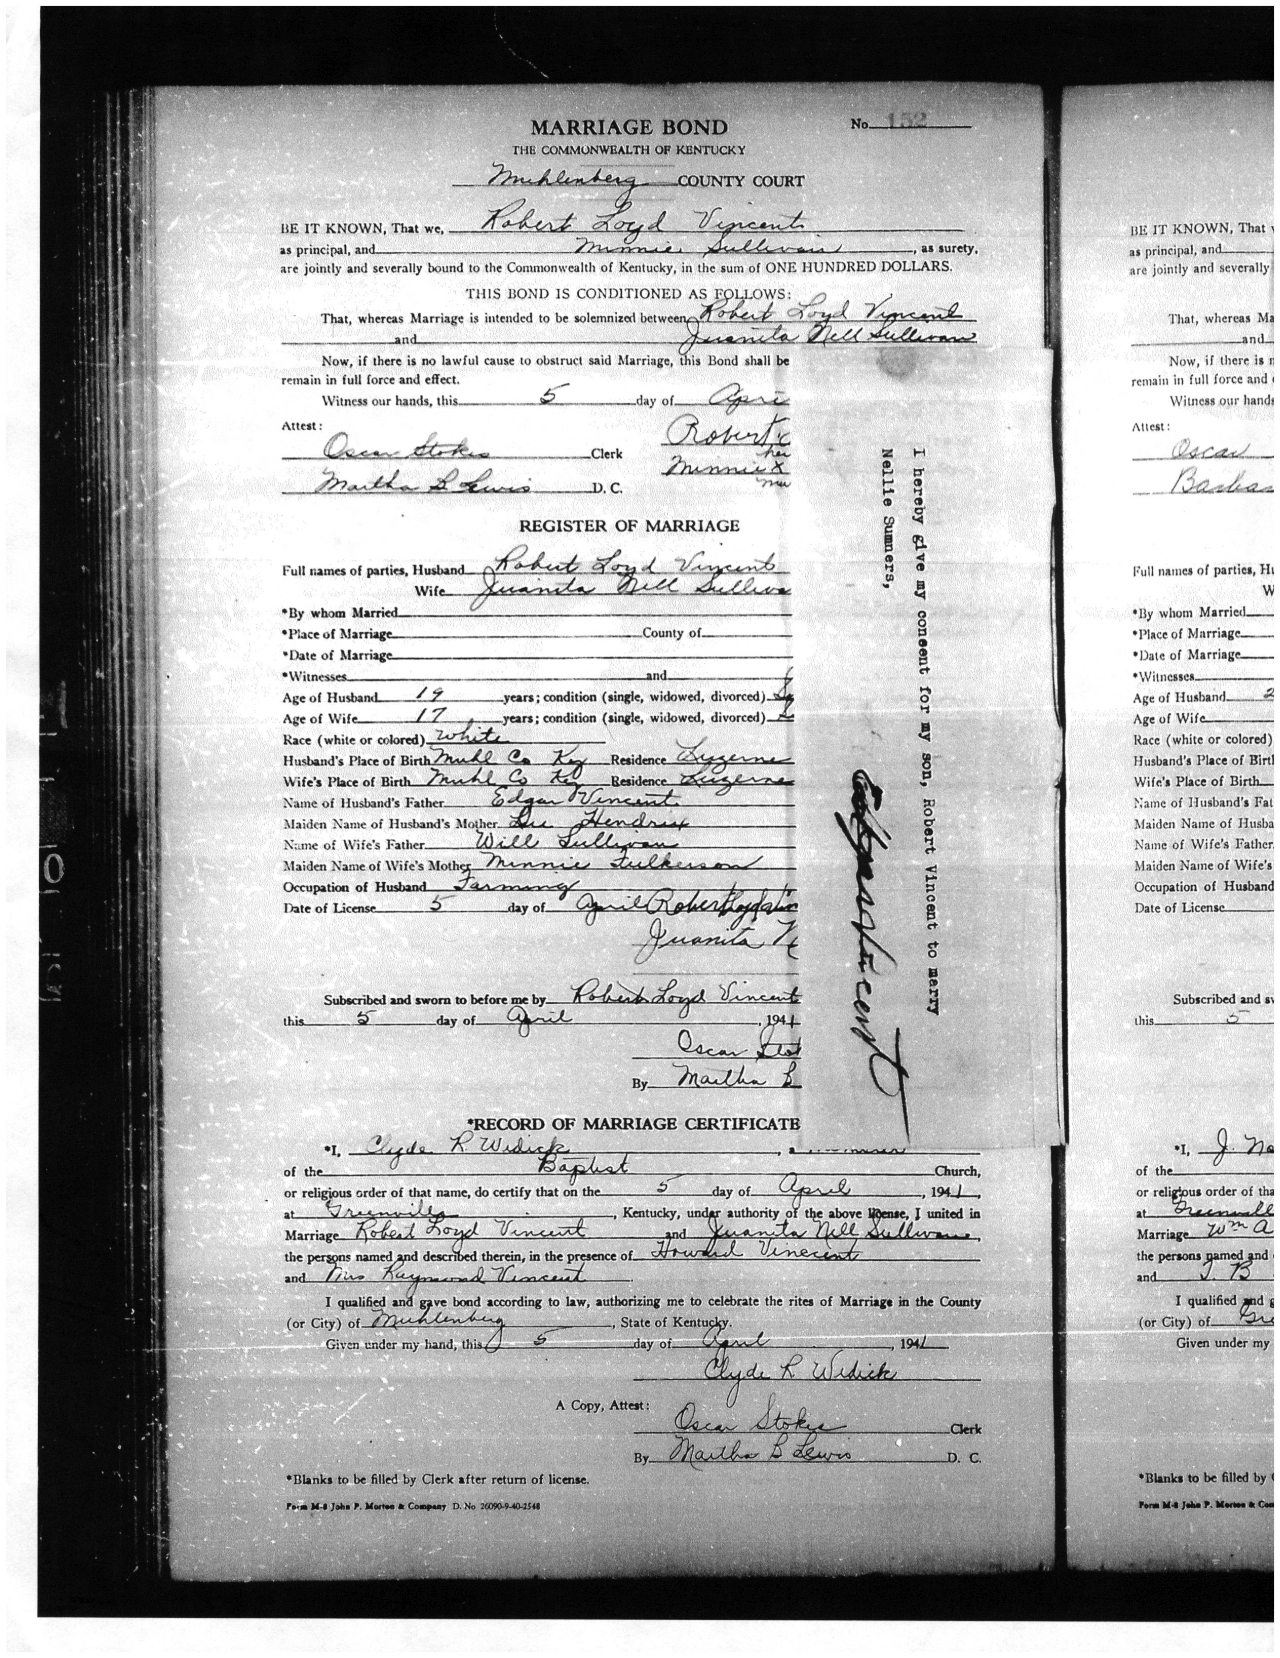 MARRIAGE BOND
No. 152
THE COMMONWEALTH OF KENTUCKY
Muhlenberg COUNTY COURT
BE IT KNOWN, That we, Robert Loyd Vincent
as principal, and Minnie Sullivan, as surety,
are jointly and severally bound to the Commonwealth of Kentucky, in the sum of ONE HUNDRED DOLLARS.
THIS BOND IS CONDITIONED AS FOLLOWS:
That, whereas Marriage is intended to be solemnized between Robert Loyd Vincent
and Juanita Nell Sullivan
Now, if there is no lawful cause to obstruct said Marriage, this Bond shall be
remain in full force and effect.
Witness our hands, this 5 day of Apri
Attest:
Robert
Oscar Stokes Clerk
her
Minnie X
Martha B Lewis D. C.
REGISTER OF MARRIAGE
Full names of parties, Husband Robert Loyd Vincent
Wife Juanita Nell Sulliva
*By whom Married
*Place of Marriage County of
*Date of Marriage
*Witnesses and
Age of Husband 19 years; condition (single, widowed, divorced)
Age of Wife 17 years; condition (single, widowed, divorced)
Race (white or colored) White
Husband's Place of Birth Muhl Co Ky Residence Luzerne
Wife's Place of Birth Muhl Co Ky Residence Luzerne
Name of Husband's Father Edgar Vincent
Maiden Name of Husband's Mother Hendrix
Name of Wife's Father Will Sullivan
Maiden Name of Wife's Mother Minnie Fulkerson
Occupation of Husband Farming
Date of License 5 day of April Robert Loyd Vin
Juanita N
Subscribed and sworn to before me by Robert Loyd Vincent
this 5 day of April, 1941
Oscar Stok
By Martha B
I hereby give my consent for my son, Robert Vincent to marry
Nellie Sumners,
Edgar Vincent
*RECORD OF MARRIAGE CERTIFICATE
*I, Clyde R Widick, a
of the Baptist Church,
or religious order of that name, do certify that on the 5 day of April, 1941,
at Greenville, Kentucky, under authority of the above license, I united in
Marriage Robert Loyd Vincent and Juanita Nell Sullivan,
the persons named and described therein, in the presence of Howard Vincent
and Mrs Raymond Vincent
I qualified and gave bond according to law, authorizing me to celebrate the rites of Marriage in the County
(or City) of Muhlenberg, State of Kentucky.
Given under my hand, this 5 day of April, 1941
Clyde R Widick
A Copy, Attest:
Oscar Stokes Clerk
By Martha B Lewis D. C.
*Blanks to be filled by Clerk after return of license.
Form M-8 John P. Morton & Company D. No 26090-9-40-2548
BE IT KNOWN, That
as principal, and
are jointly and severally
That, whereas Ma
and
Now, if there is
remain in full force and
Witness our hands
Attest:
Oscar
Barba
Full names of parties, Hu
W
*By whom Married
*Place of Marriage
*Date of Marriage
*Witnesses
Age of Husband 2
Age of Wife
Race (white or colored)
Husband's Place of Birt
Wife's Place of Birth
Name of Husband's Fat
Maiden Name of Husba
Name of Wife's Father
Maiden Name of Wife's
Occupation of Husband
Date of License
Subscribed and s
this 5
*I, J. No
of the
or religious order of tha
at Greenvill
Marriage Wm A
the persons named and
and T. B
I qualified and g
(or City) of Gre
Given under my
*Blanks to be filled by
Form M-8 John P. Morton & Com